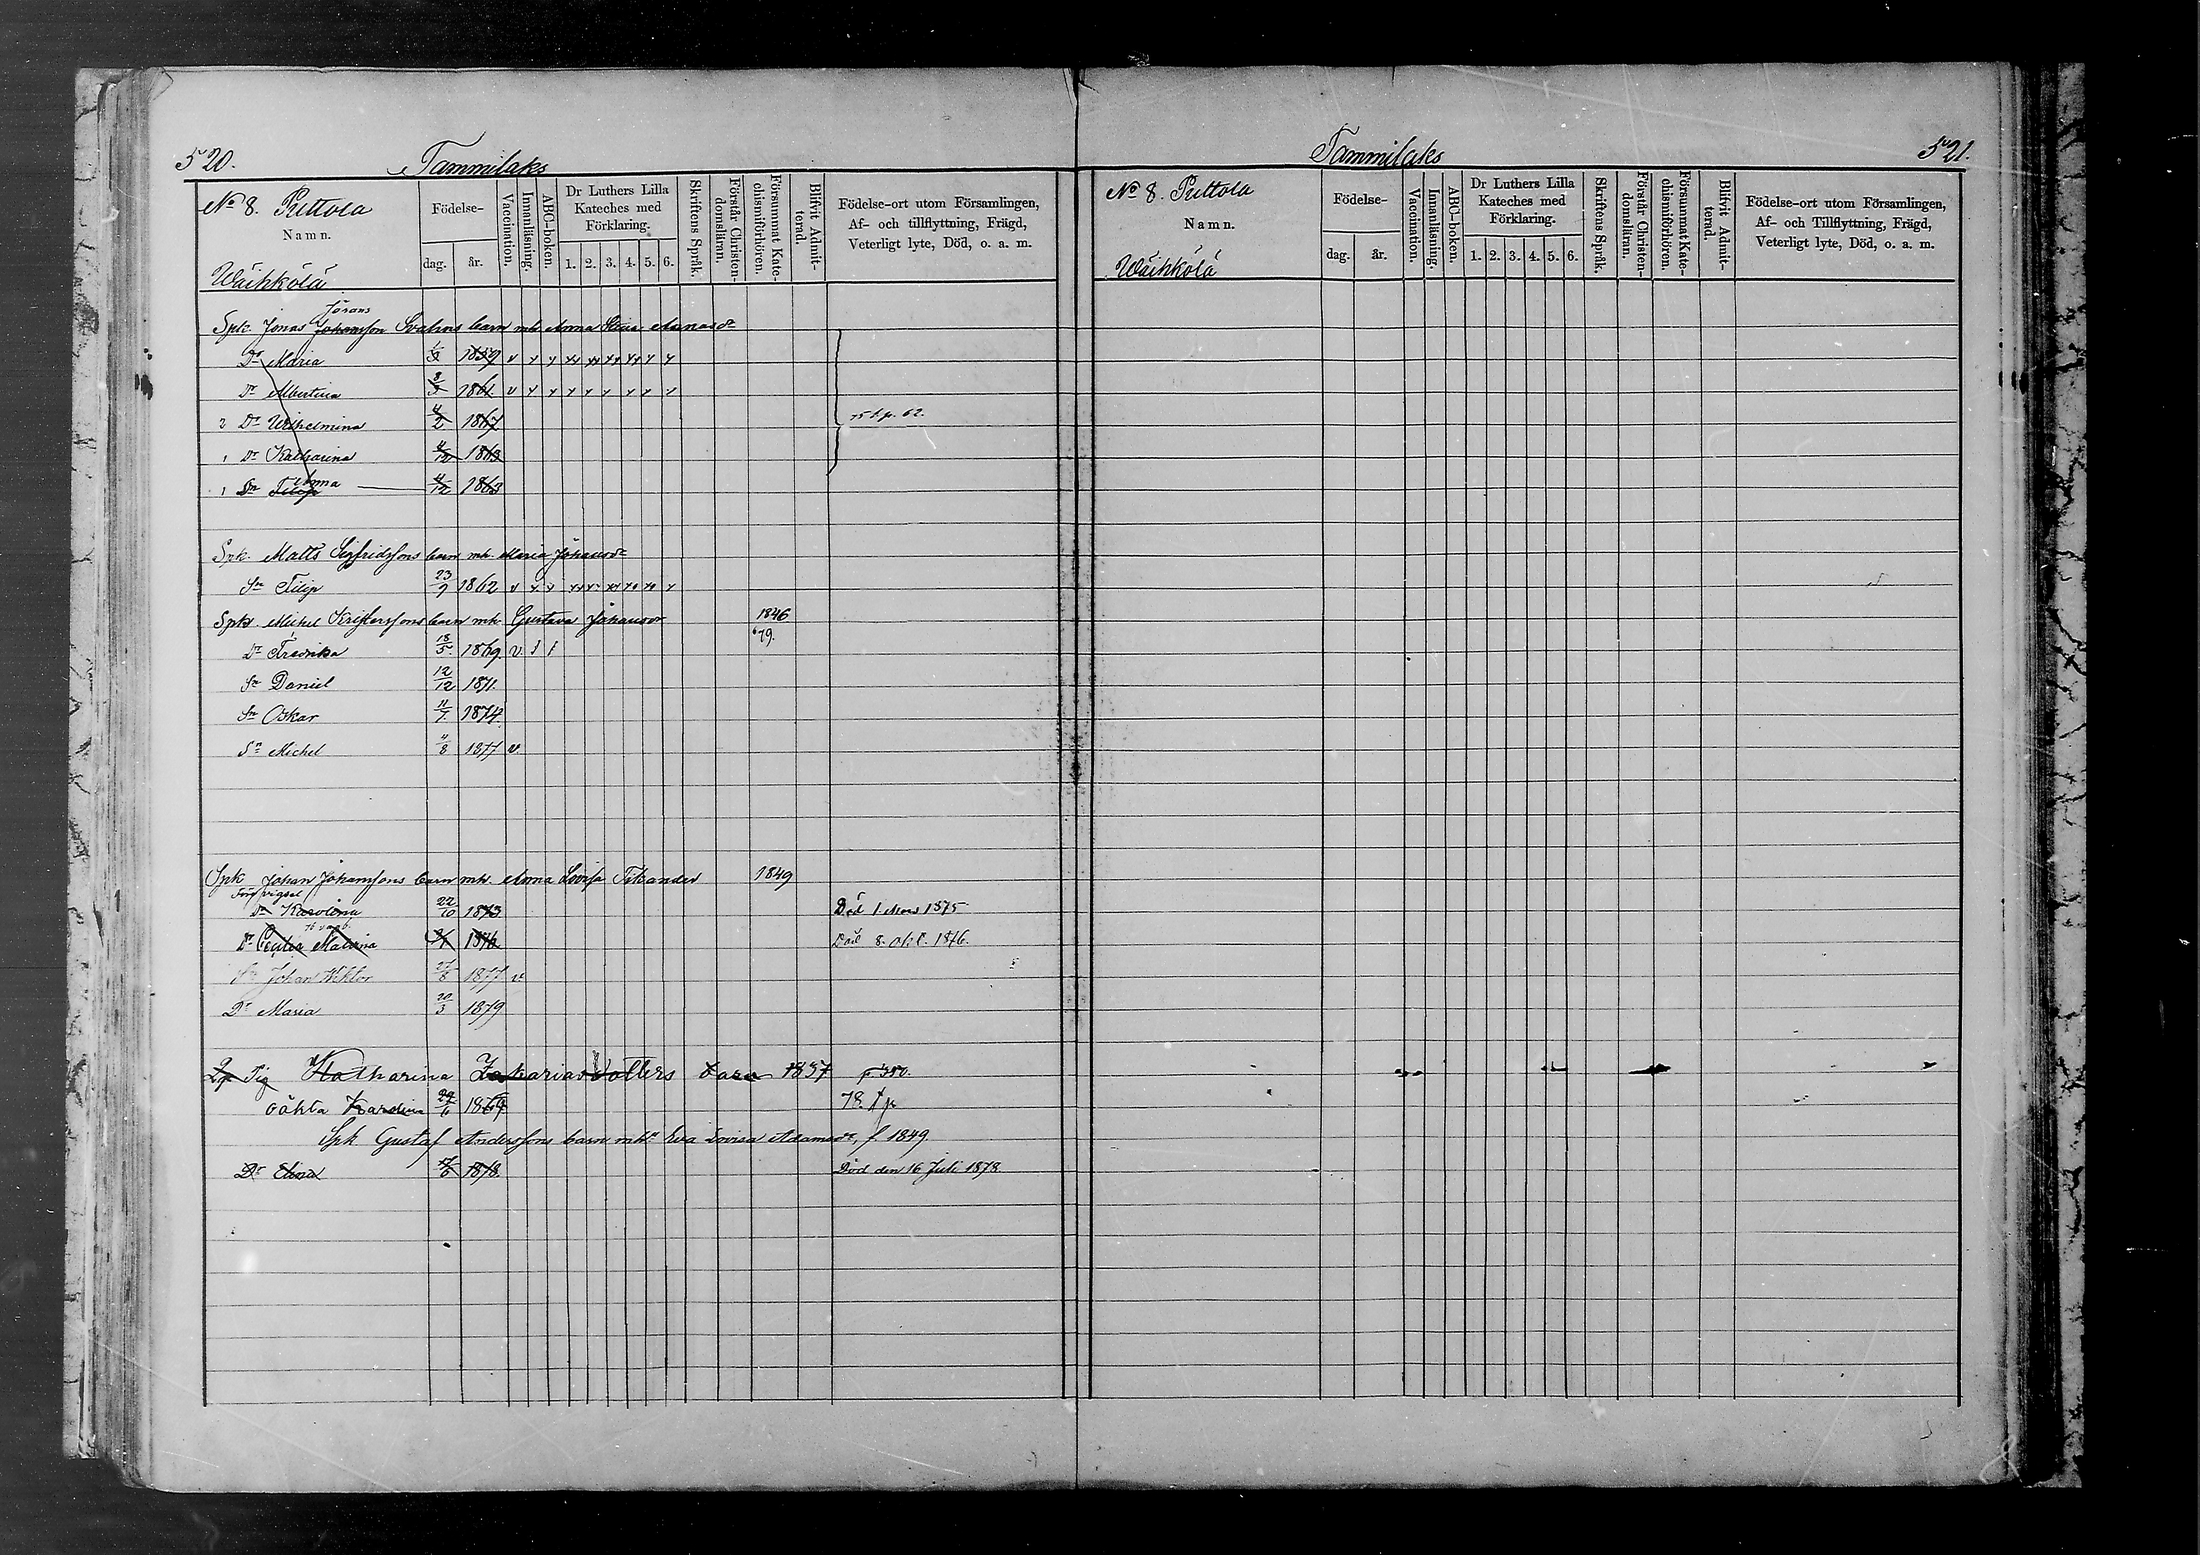 520.
Tammilaks
No 8. Puttola
Namn.
Wäihkölä
Födelse-
dag. år.
Vaccination.
Innanläsning.
ABC-boken.
Dr Luthers Lilla Kateches med Förklaring.
1. 2. 3. 4. 5. 6.
Skriftens Språk.
Förstår Christendomsläran.
Försummat Katechismiförhören.
Blifvit Admitterad.
Födelse-ort utom Församlingen,
Af- och tillflyttning, Frägd,
Veterligt lyte, Död, o. a. m.
Jörans
Spk. Jonas Johansson Svahns barn mh Anna
Dr Maria 1859 v
Dr Albertina 1861 v
2 Dr Wilhelmina 4/2 1867
1 Dr Katharina 4/12 1863
Anna
1 Sn Filip 4/12 1863
Spk. Matts Sigfridssons barn mh. Maria Johansdr
Sn Filip 23/9 1862 v
Spk. Michel Kristerssons barn mh. Gustava Johansdr 1846
79.
Dr Fredrika 18/5 1869. v.
Sn Daniel 12/12 1871.
Sn Oskar 11/7 1874.
Sn Michel 4/8 1877 v.
Spk Johan Johanssons barn mh. Anna Lovisa Tikander 1849
Före vigsel
Dr Karolina 22/10 1873 Död 1 Mars 1875
Dr Cecilia Malvina 1876 Död 8. Okt. 1876.
Sn Johan Viktor 27/8 1877 v.
Dr Maria 20/3 1879
Pig Katharina Zakarias dotters barn 1837 p 350.
oäkta Karolina 29/6 1869 78.
Spk Gustaf Anderssons barn mhu Eva Lovisa Adamsdr, f 1849.
Dr Elina 1878. Död den 16 Juli 1878
Tammilaks
521.
No 8. Puttola
Namn.
Wäihkölä
Födelse-
dag. år.
Vaccination.
Innanläsning.
ABC-boken.
Dr Luthers Lilla Kateches med Förklaring.
1. 2. 3. 4. 5. 6.
Skriftens Språk.
Förstår Christendomsläran.
Försummat Katechismiförhören.
Blifvit Admitterad.
Födelse-ort utom Församlingen,
Af- och Tillflyttning, Frägd,
Veterligt lyte, Död, o. a. m.